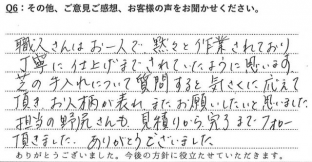 Q6：その他、ご意見ご感想、お客様の声をお聞かせください。
職人さんはお一人で、黙々と作業されており
丁寧に仕上げまでされていたように思います。
芝の手入れについて質問すると気さくに応えて
頂き、お人柄が表れ、またお願いしたいと思いました。
担当の野尻さんも、見積りから完了までフォロー
頂きました。ありがとうございました。
ありがとうございました。今後の方針に役立たせていただきます。